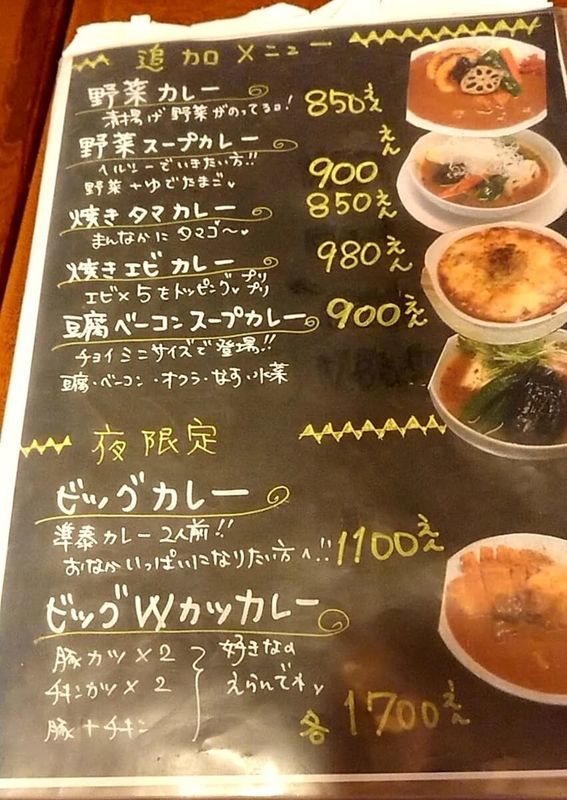 追加メニュー
野菜カレー 850えん
素揚げ野菜がのってるョ!
野菜スープカレー 900えん
ヘルシーでいきたい方!!
野菜+ゆでたまご♥
焼きタマカレー 850えん
まんなかにタマゴ〜♥
焼きエビカレー 980えん
エビ×5をトッピング♥プリプリ
豆腐ベーコンスープカレー 900えん
チョイミニサイズで登場!!
豆腐・ベーコン・オクラ・なす・水菜
夜限定
ビッグカレー
準泰カレー2人前!!
おなかいっぱいになりたい方へ!! 1100えん
ビッグWカツカレー
豚カツ×2
チキンカツ×2
豚+チキン
好きなの
えらんでネ♥
各1700えん